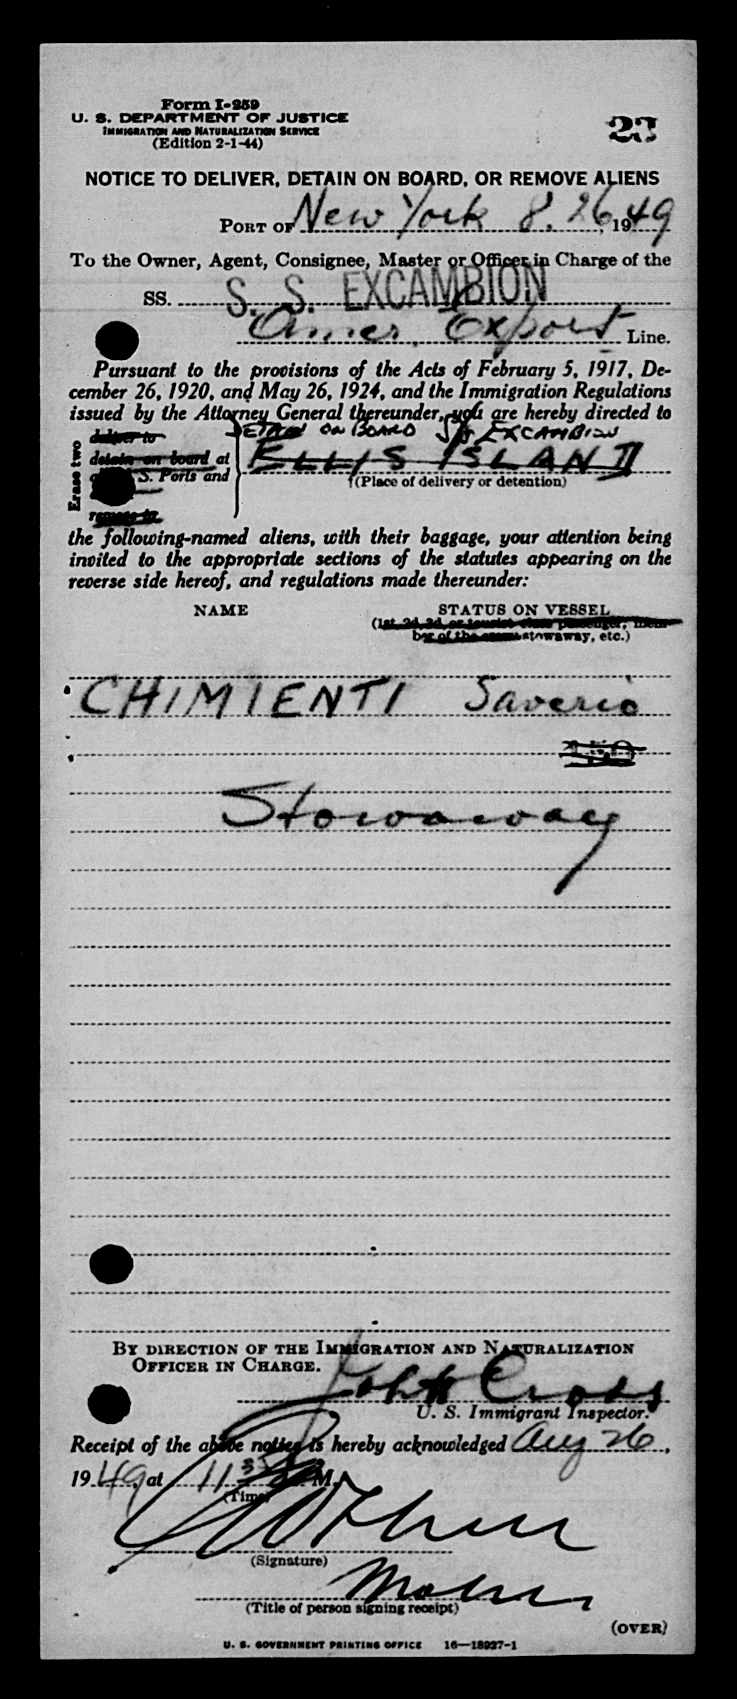 Form I-259
U. S. DEPARTMENT OF JUSTICE
IMMIGRATION AND NATURALIZATION SERVICE
(Edition 2-1-44)
23
NOTICE TO DELIVER, DETAIN ON BOARD, OR REMOVE ALIENS
PORT OF New York 8. 26, 1949
To the Owner, Agent, Consignee, Master or Officer in Charge of the
SS. S. S. EXCAMBION
Amer. Export Line.
Pursuant to the provisions of the Acts of February 5, 1917, De-
cember 26, 1920, and May 26, 1924, and the Immigration Regulations
issued by the Attorney General thereunder, you are hereby directed to
deliver to
DETAIN ON BOARD S/S EXCAMBION
detain on board at
ELLIS ISLAND
Erase two
S. Ports and
(Place of delivery or detention)
remove to
the following-named aliens, with their baggage, your attention being
invited to the appropriate sections of the statutes appearing on the
reverse side hereof, and regulations made thereunder:
NAME STATUS ON VESSEL
(1st, 2d, 3d, or tourist class passenger, mem-
ber of the crew, stowaway, etc.)
CHIMIENTI Saverio
Stowaway
BY DIRECTION OF THE IMMIGRATION AND NATURALIZATION
OFFICER IN CHARGE.
John Cross
U. S. Immigrant Inspector.
Receipt of the above notice is hereby acknowledged Aug 26,
1949, at 11 M.
(Time)
(Signature)
(Title of person signing receipt)
(OVER)
U. S. GOVERNMENT PRINTING OFFICE 16—18927-1